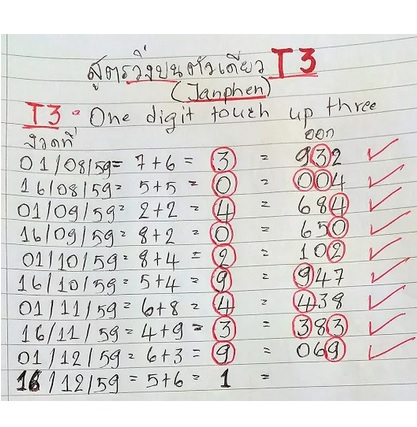 สูตรวิ่งบนตัวเดียว T3
(Janphen)
T3 = One digit touch up three
งวดที่ ออก
01/08/59 = 7+6 = 3 = 932
16/08/59 = 5+5 = 0 = 004
01/09/59 = 2+2 = 4 = 684
16/09/59 = 8+2 = 0 = 650
01/10/59 = 8+4 = 2 = 102
16/10/59 = 5+4 = 9 = 947
01/11/59 = 6+8 = 4 = 438
16/11/59 = 4+9 = 3 = 383
01/12/59 = 6+3 = 9 = 069
16/12/59 = 5+6 = 1 =